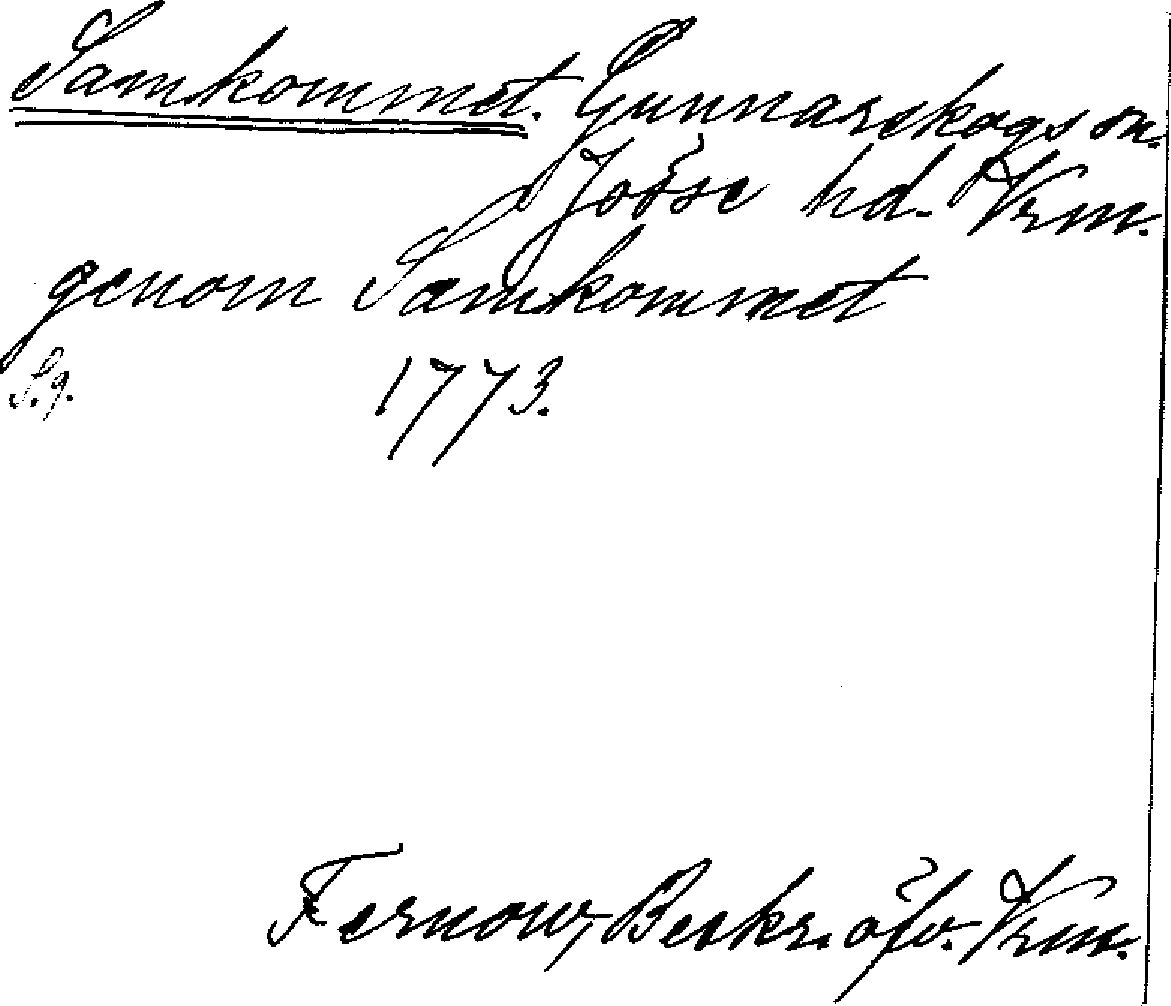 Samkommet. Gunnarskogs sn.
Jösse hd. Vrm.
genom Samkommet
S. 9. 1773.
Fernow, Beskr. öfv. Vrm.